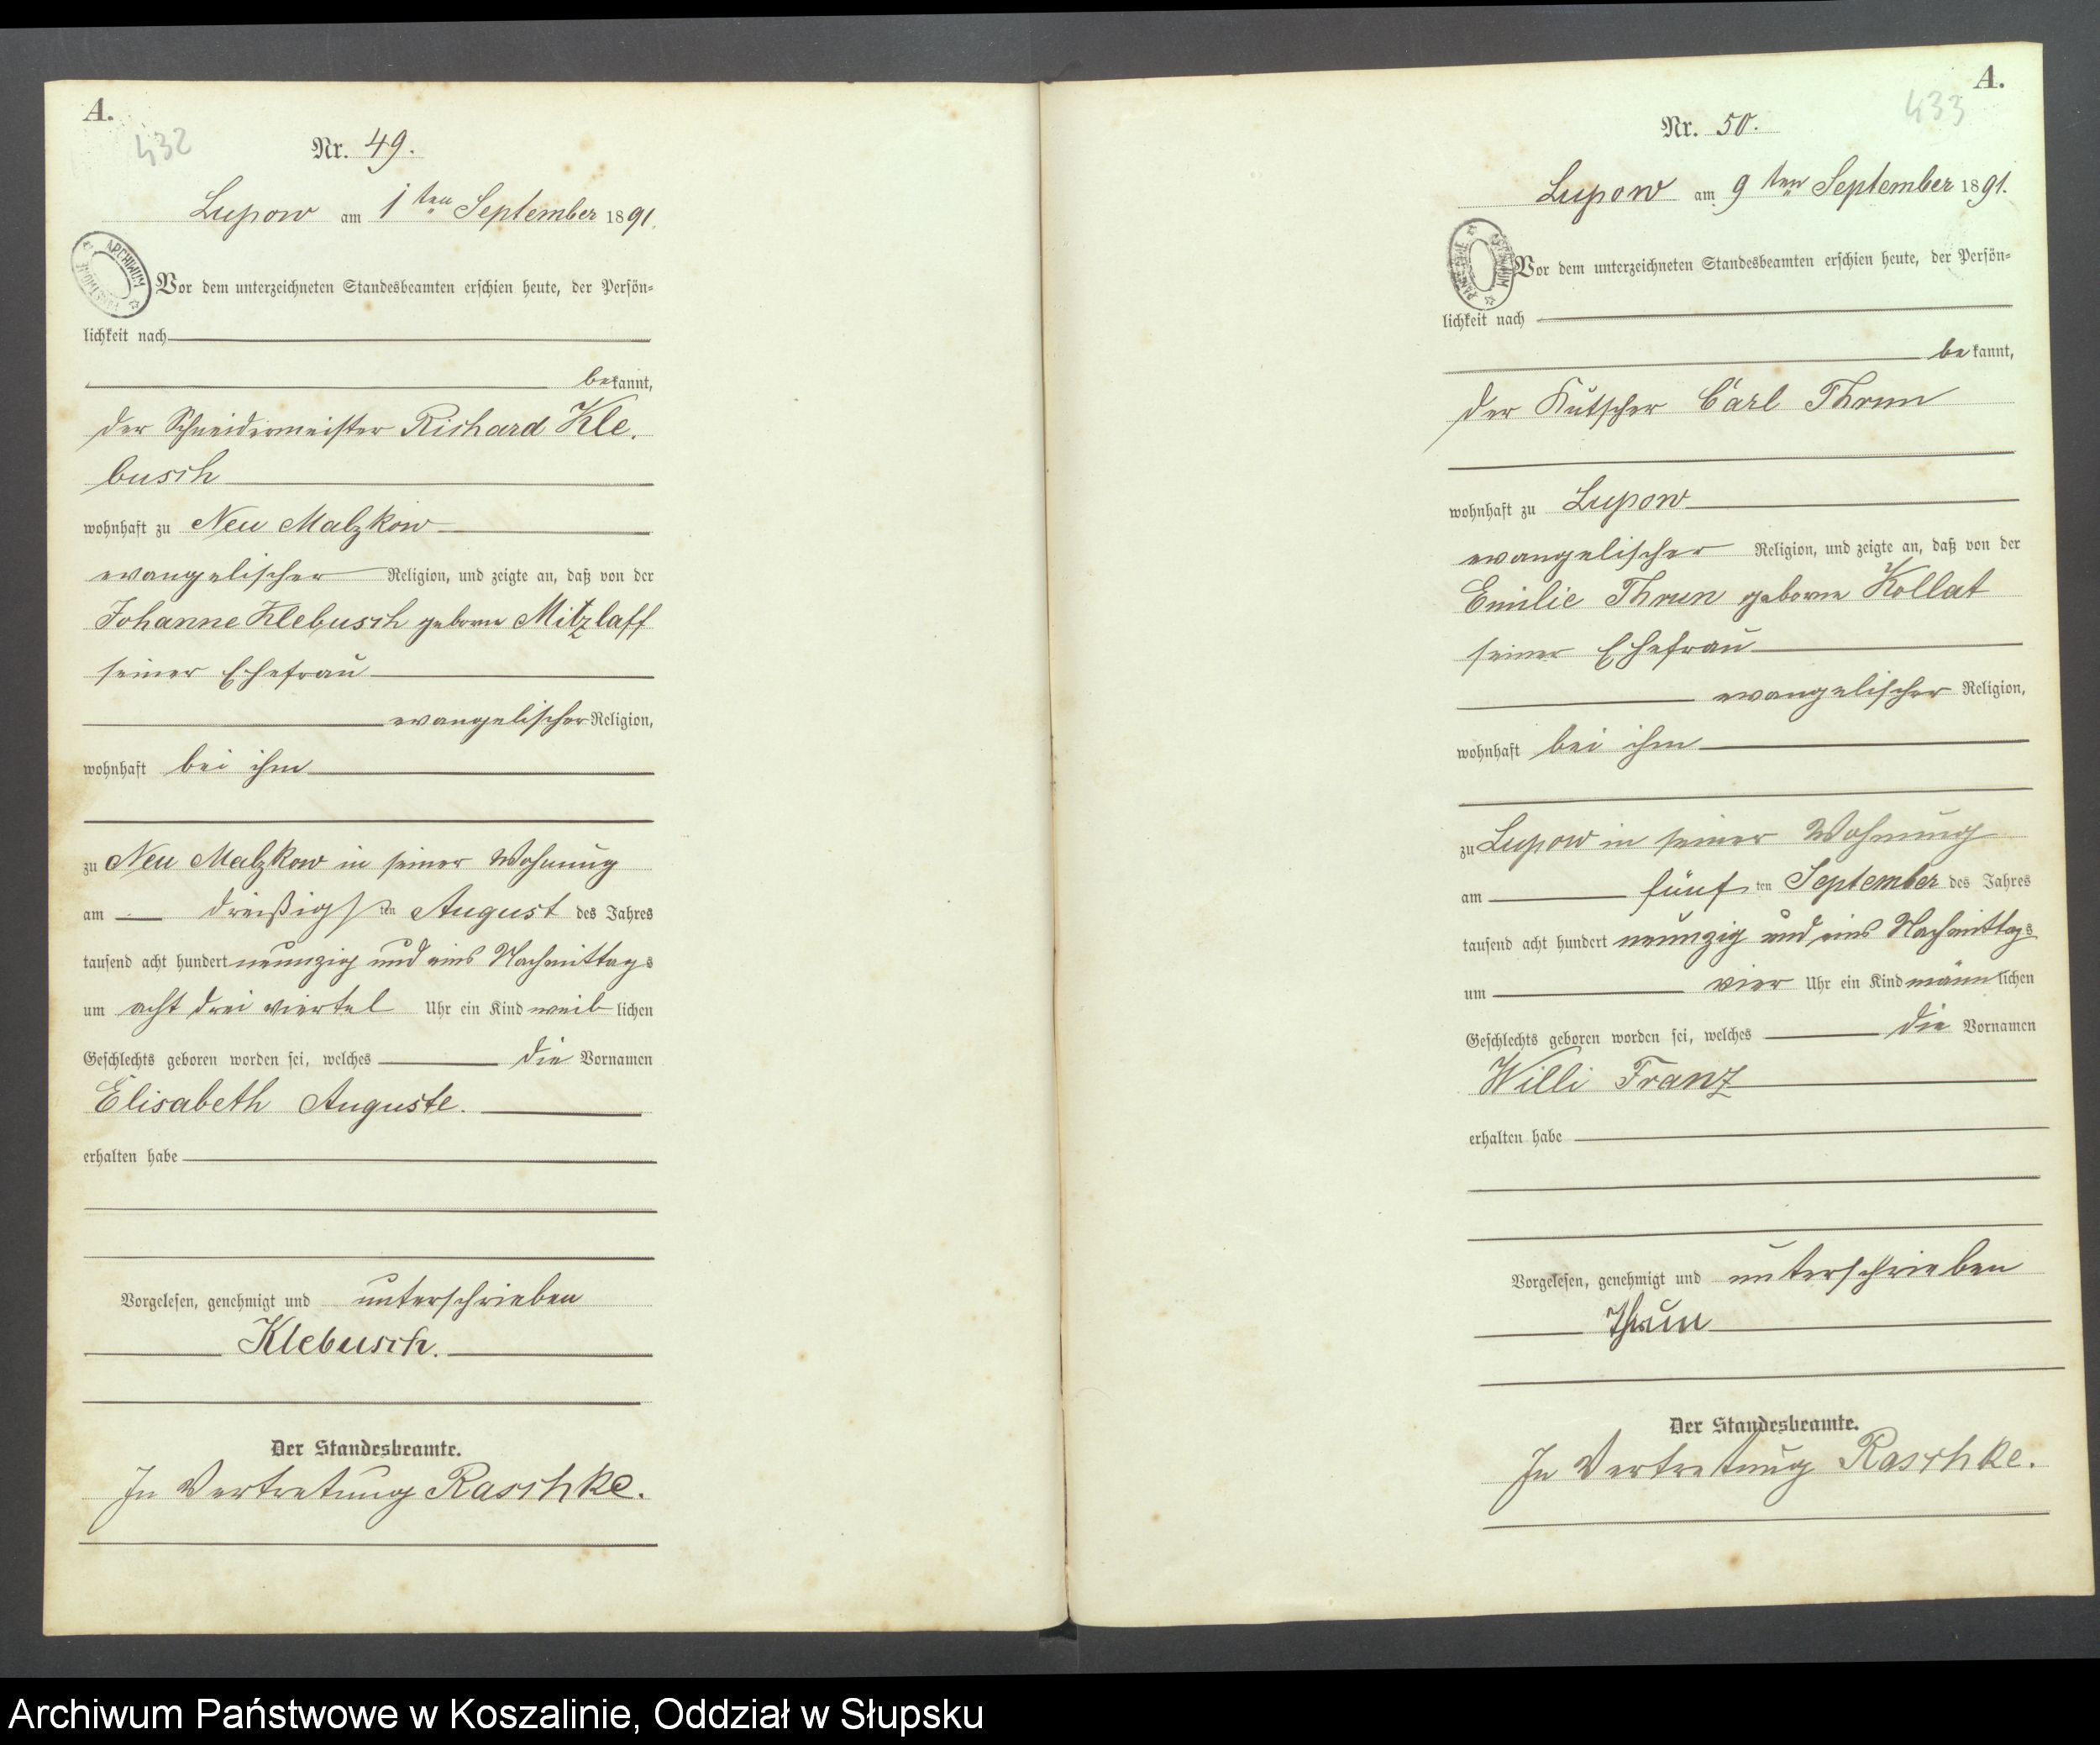 A.
432
Nr. 49.
Lupow am 1ten September 1891.
ARCHIWUM PAŃSTWOWE
Vor dem unterzeichneten Standesbeamten erschien heute, der Persön-
lichkeit nach
bekannt,
der Schneidermeister Richard Kle-
busch
wohnhaft zu Neu Malzkow
evangelischer Religion, und zeigte an, daß von der
Johanne Klebusch geborne Mitzlaff
seiner Ehefrau
evangelischer Religion,
wohnhaft bei ihm
zu Neu Malzkow in seiner Wohnung
am dreißigsten August des Jahres
tausend acht hundert neunzig und eins Nachmittags
um acht drei viertel Uhr ein Kind weiblichen
Geschlechts geboren worden sei, welches die Vornamen
Elisabeth Auguste.
erhalten habe
Vorgelesen, genehmigt und unterschrieben
Klebusch.
Der Standesbeamte.
In Vertretung Raschke.
A.
433
Nr. 50.
Lupow am 9ten September 1891.
ARCHIWUM PAŃSTWOWE
Vor dem unterzeichneten Standesbeamten erschien heute, der Persön-
lichkeit nach
bekannt,
der Kutscher Carl Thrun
wohnhaft zu Lupow
evangelischer Religion, und zeigte an, daß von der
Emilie Thrun geborne Kollat
seiner Ehefrau
evangelischer Religion,
wohnhaft bei ihm
zu Lupow in seiner Wohnung
am fünften September des Jahres
tausend acht hundert neunzig und eins Nachmittags
um vier Uhr ein Kind männlichen
Geschlechts geboren worden sei, welches die Vornamen
Willi Franz
erhalten habe
Vorgelesen, genehmigt und unterschrieben
Thrun
Der Standesbeamte.
In Vertretung Raschke.
Archiwum Państwowe w Koszalinie, Oddział w Słupsku